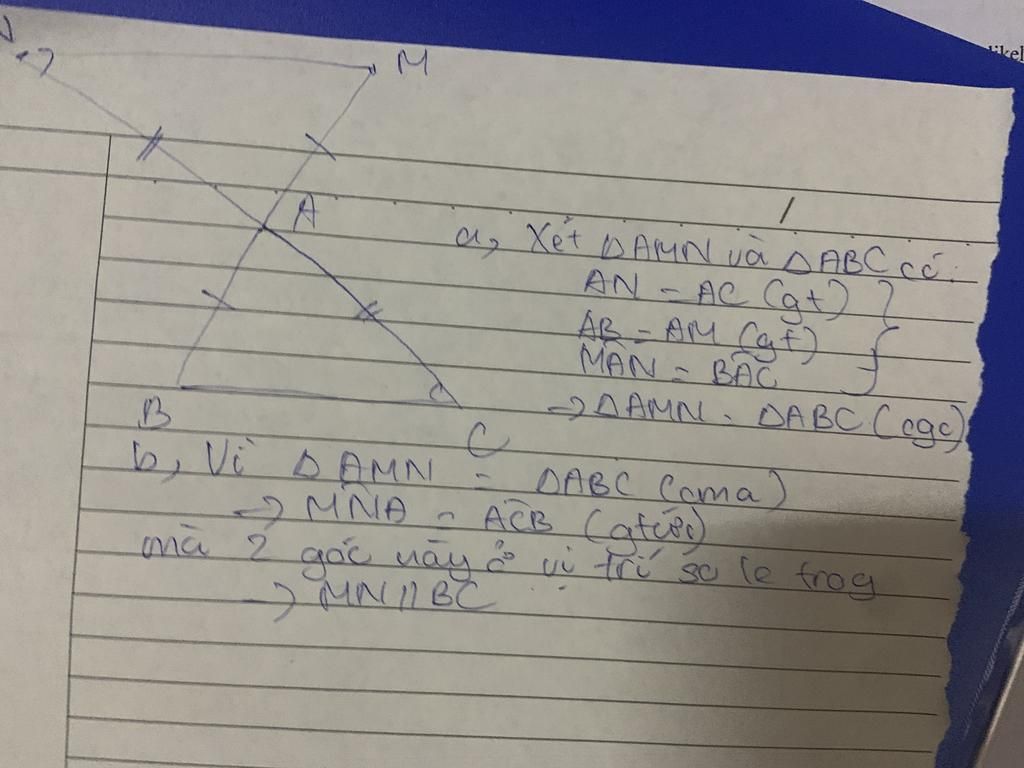 N
M
A
a, Xét ΔAMN và ΔABC có:
AN = AC (gt)
AB = AM (gt)
MAN = BAC
→ ΔAMN = ΔABC (cgc)
B
C
b, Vì ΔAMN = ΔABC (cma)
→ MNA = ACB (gtứ)
mà 2 góc này ở vị trí so le trog
→ MN // BC